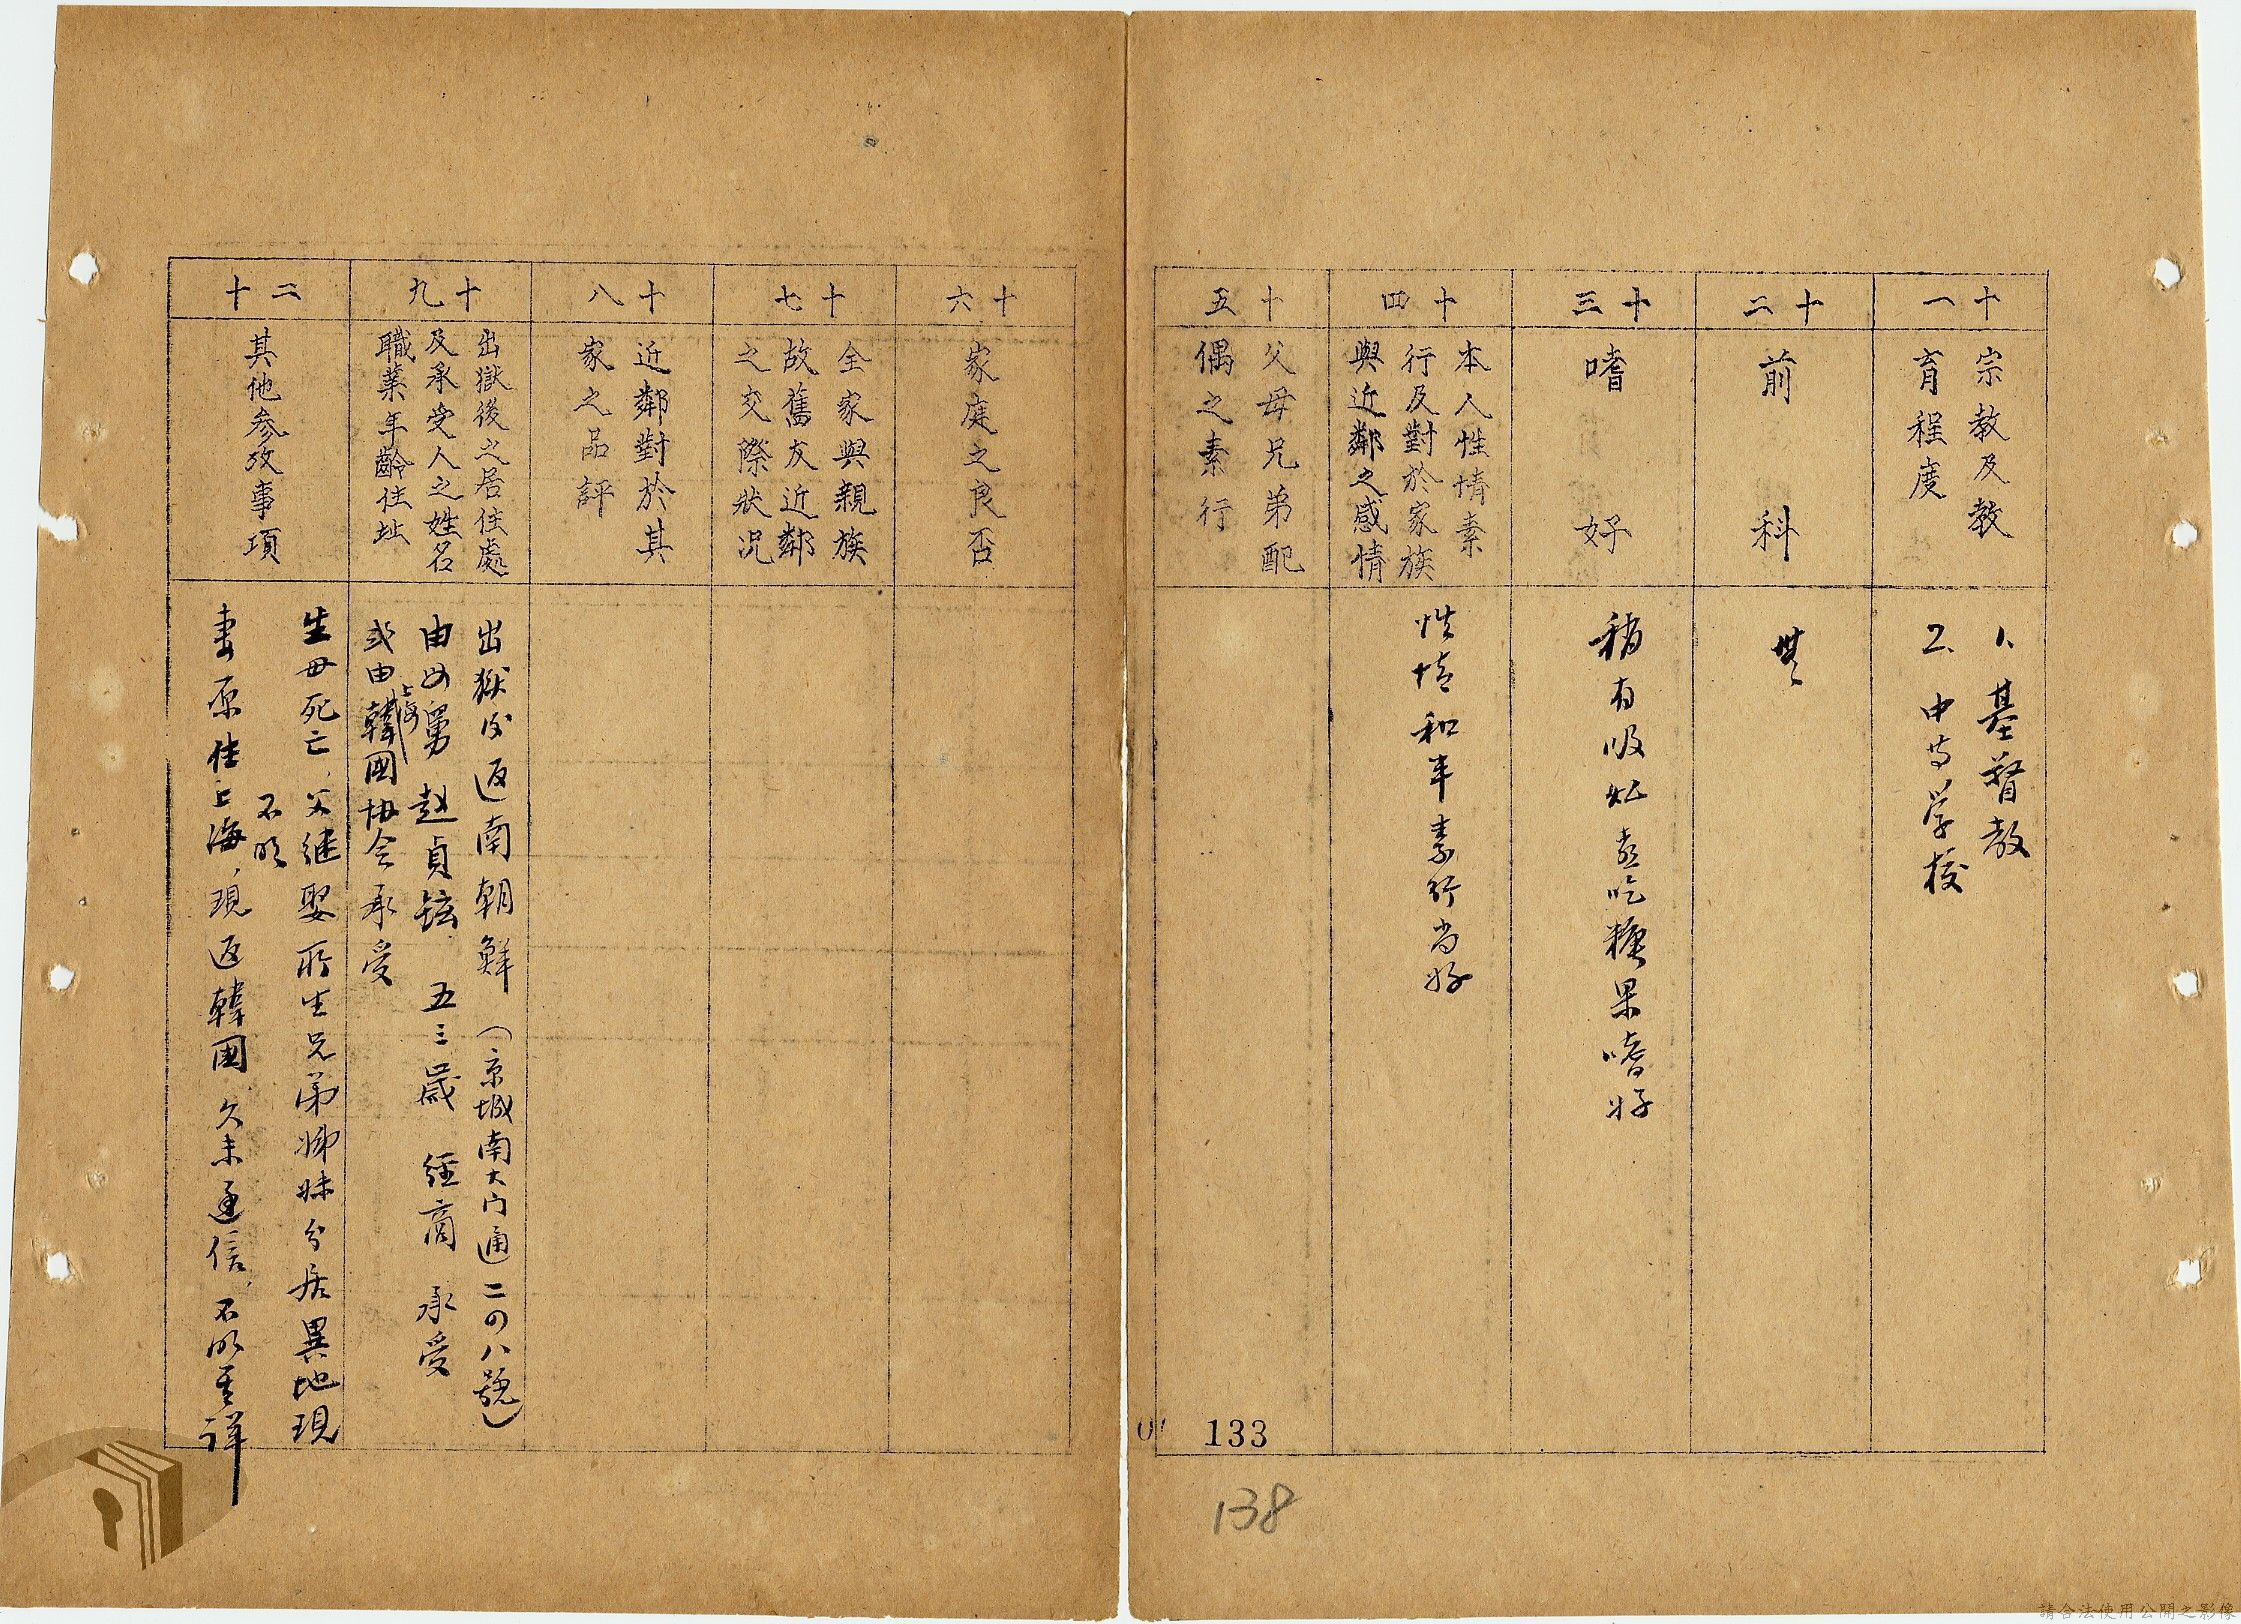 十一
宗教及教
育程度
1、基督教
2、中等学校
十二
前科
無
十三
嗜好
稍有吸烟喜吃糖果嗜好
十四
本人性情素
行及對於家族
與近鄰之感情
性情和平素行尚好
十五
父母兄弟配
偶之素行
133
138
十六
家庭之良否
十七
全家與親族
故舊友近鄰
之交際狀況
十八
近鄰對於其
家之品評
十九
出獄後之居住處
及承受人之姓名
職業年齡住址
出獄后返南朝鮮（京城南大门通二四八號）
由母舅 趙貞鉉 五三歲 經商 承受
或由上海韓國协会承受
二十
其他參攷事項
生母死亡，父继娶所生兄弟姊妹分居異地現
不明
妻原住上海，現返韓國，久未通信，不明其詳
請合法使用公開之影像